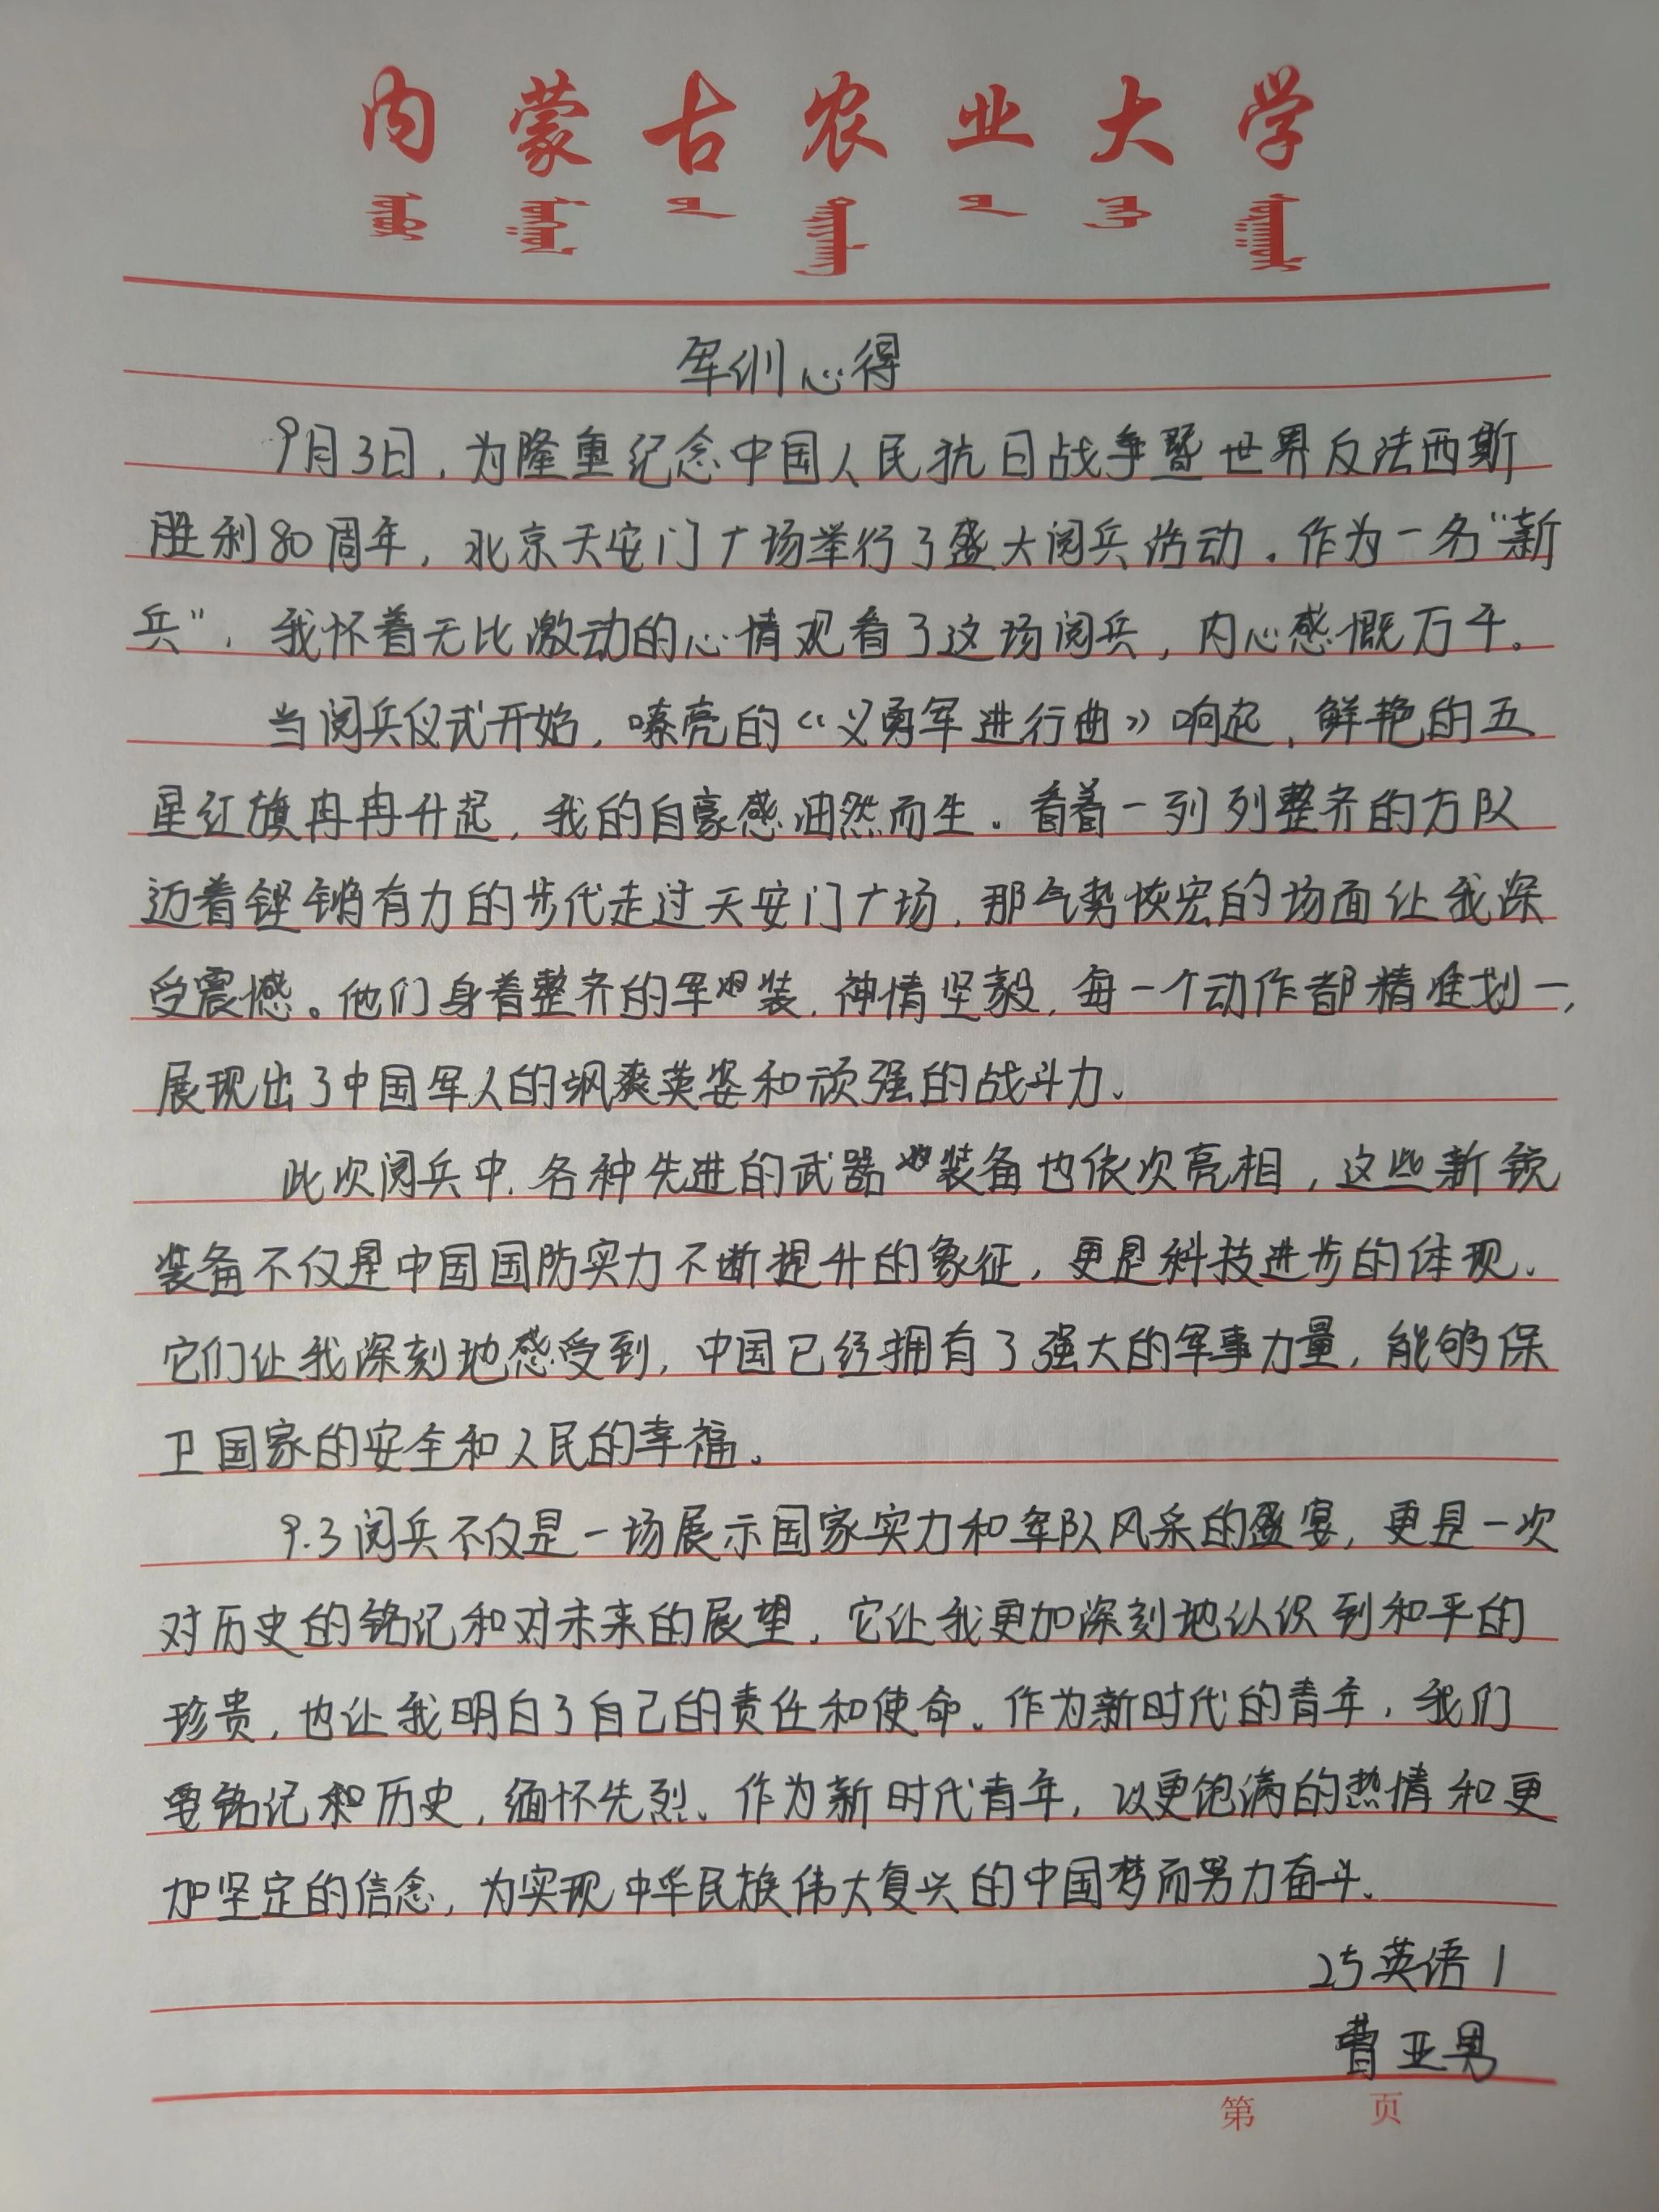 内蒙古农业大学
军训心得
9月3日，为隆重纪念中国人民抗日战争暨世界反法西斯
胜利80周年，北京天安门广场举行了盛大阅兵活动。作为一名“新
兵”，我怀着无比激动的心情观看了这场阅兵，内心感慨万千。
当阅兵仪式开始，嘹亮的《义勇军进行曲》响起，鲜艳的五
星红旗冉冉升起，我的自豪感油然而生。看着一列列整齐的方队
迈着铿锵有力的步伐走过天安门广场，那气势恢宏的场面让我深
受震撼。他们身着整齐的军装，神情坚毅，每一个动作都精准划一，
展现出了中国军人的飒爽英姿和顽强的战斗力。
此次阅兵中，各种先进的武器装备也依次亮相，这些新锐
装备不仅是中国国防实力不断提升的象征，更是科技进步的体现。
它们让我深刻地感受到，中国已经拥有了强大的军事力量，能够保
卫国家的安全和人民的幸福。
9.3阅兵不仅是一场展示国家实力和军队风采的盛宴，更是一次
对历史的铭记和对未来的展望，它让我更加深刻地认识到和平的
珍贵，也让我明白了自己的责任和使命。作为新时代的青年，我们
要铭记和历史，缅怀先烈。作为新时代青年，以更饱满的热情和更
加坚定的信念，为实现中华民族伟大复兴的中国梦而努力奋斗。
25英语1
曹亚男
第 页